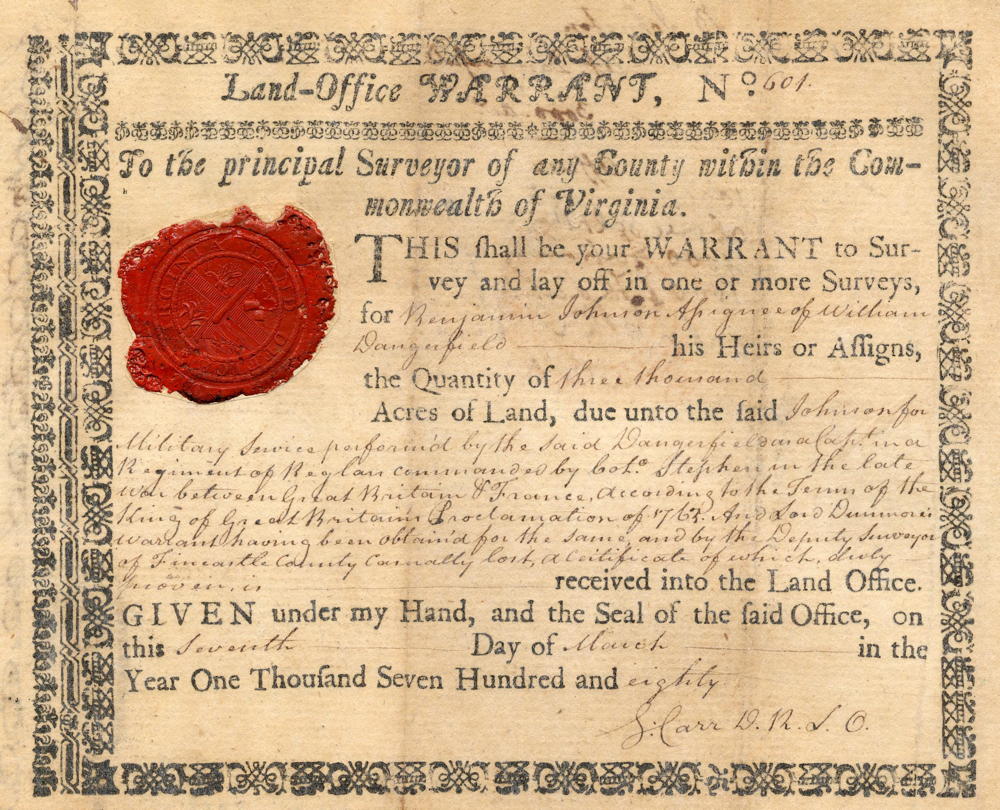 Land-Office WARRANT, No. 601.
To the principal Surveyor of any County within the Com-
monwealth of Virginia.
THIS ſhall be your WARRANT to Sur-
vey and lay off in one or more Surveys,
for Benjamin Johnson Aſsignee of William
Dangerfield his Heirs or Aſſigns,
the Quantity of three thousand
Acres of Land, due unto the ſaid Johnson for
Military Service perform'd by the said Dangerfield as a Capt. in a
Regiment of Reglars commanded by Colo. Stephen in the late
War between Great Britain & France, according to the Terms of the
King of Great Britain's Proclamation of 1763. And Lord Dunmore's
Warrant having been obtain'd for the same, and by the Deputy Surveyor
of Fincastle County Casually lost, a Certificate of which, duly
proven, is received into the Land Office.
GIVEN under my Hand, and the Seal of the ſaid Office, on
this Seventh Day of March in the
Year One Thouſand Seven Hundred and eighty
J. Carr D. R. L. O.